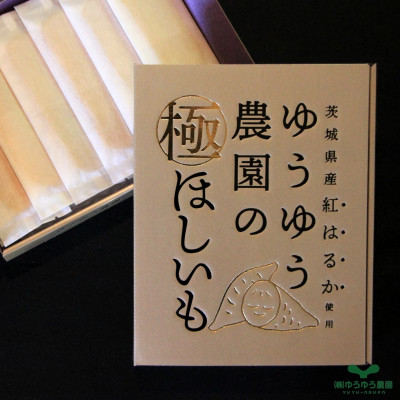 茨城県産紅はるか使用
ゆうゆう
農園の
極ほしいも
㈱ゆうゆう農園
YUYU-NOUEN